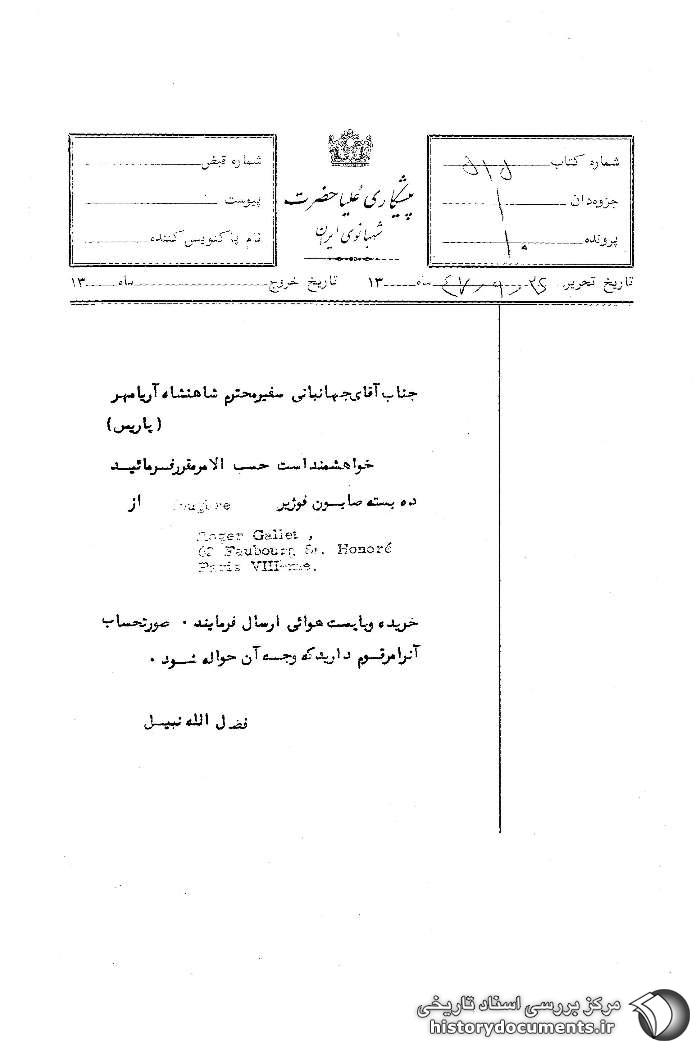 شماره کتاب
جزوه‌دان ۱
پرونده ۱۰
پیشکاری علیا حضرت
شهبانوی ایران
شماره قبض
پیوست
نام پاکنویس کننده
تاریخ تحریر ماه ۱۳
تاریخ خروج ماه ۱۳
جناب آقای جهانبانی سفیر محترم شاهنشاه آریامهر
(پاریس)
خواهشمند است حسب الامر مقرر فرمائید
ده بسته صابون فوژیر از
Roger Gallet ,
62 Faubourg St. Honoré
Paris VIII-me.
خریده و با پست هوائی ارسال فرمایند . صورتحساب
آنرا مرقوم دارید که وجه آن حواله شود .
فضل الله نبیل
مرکز بررسی اسناد تاریخی
historydocuments.ir